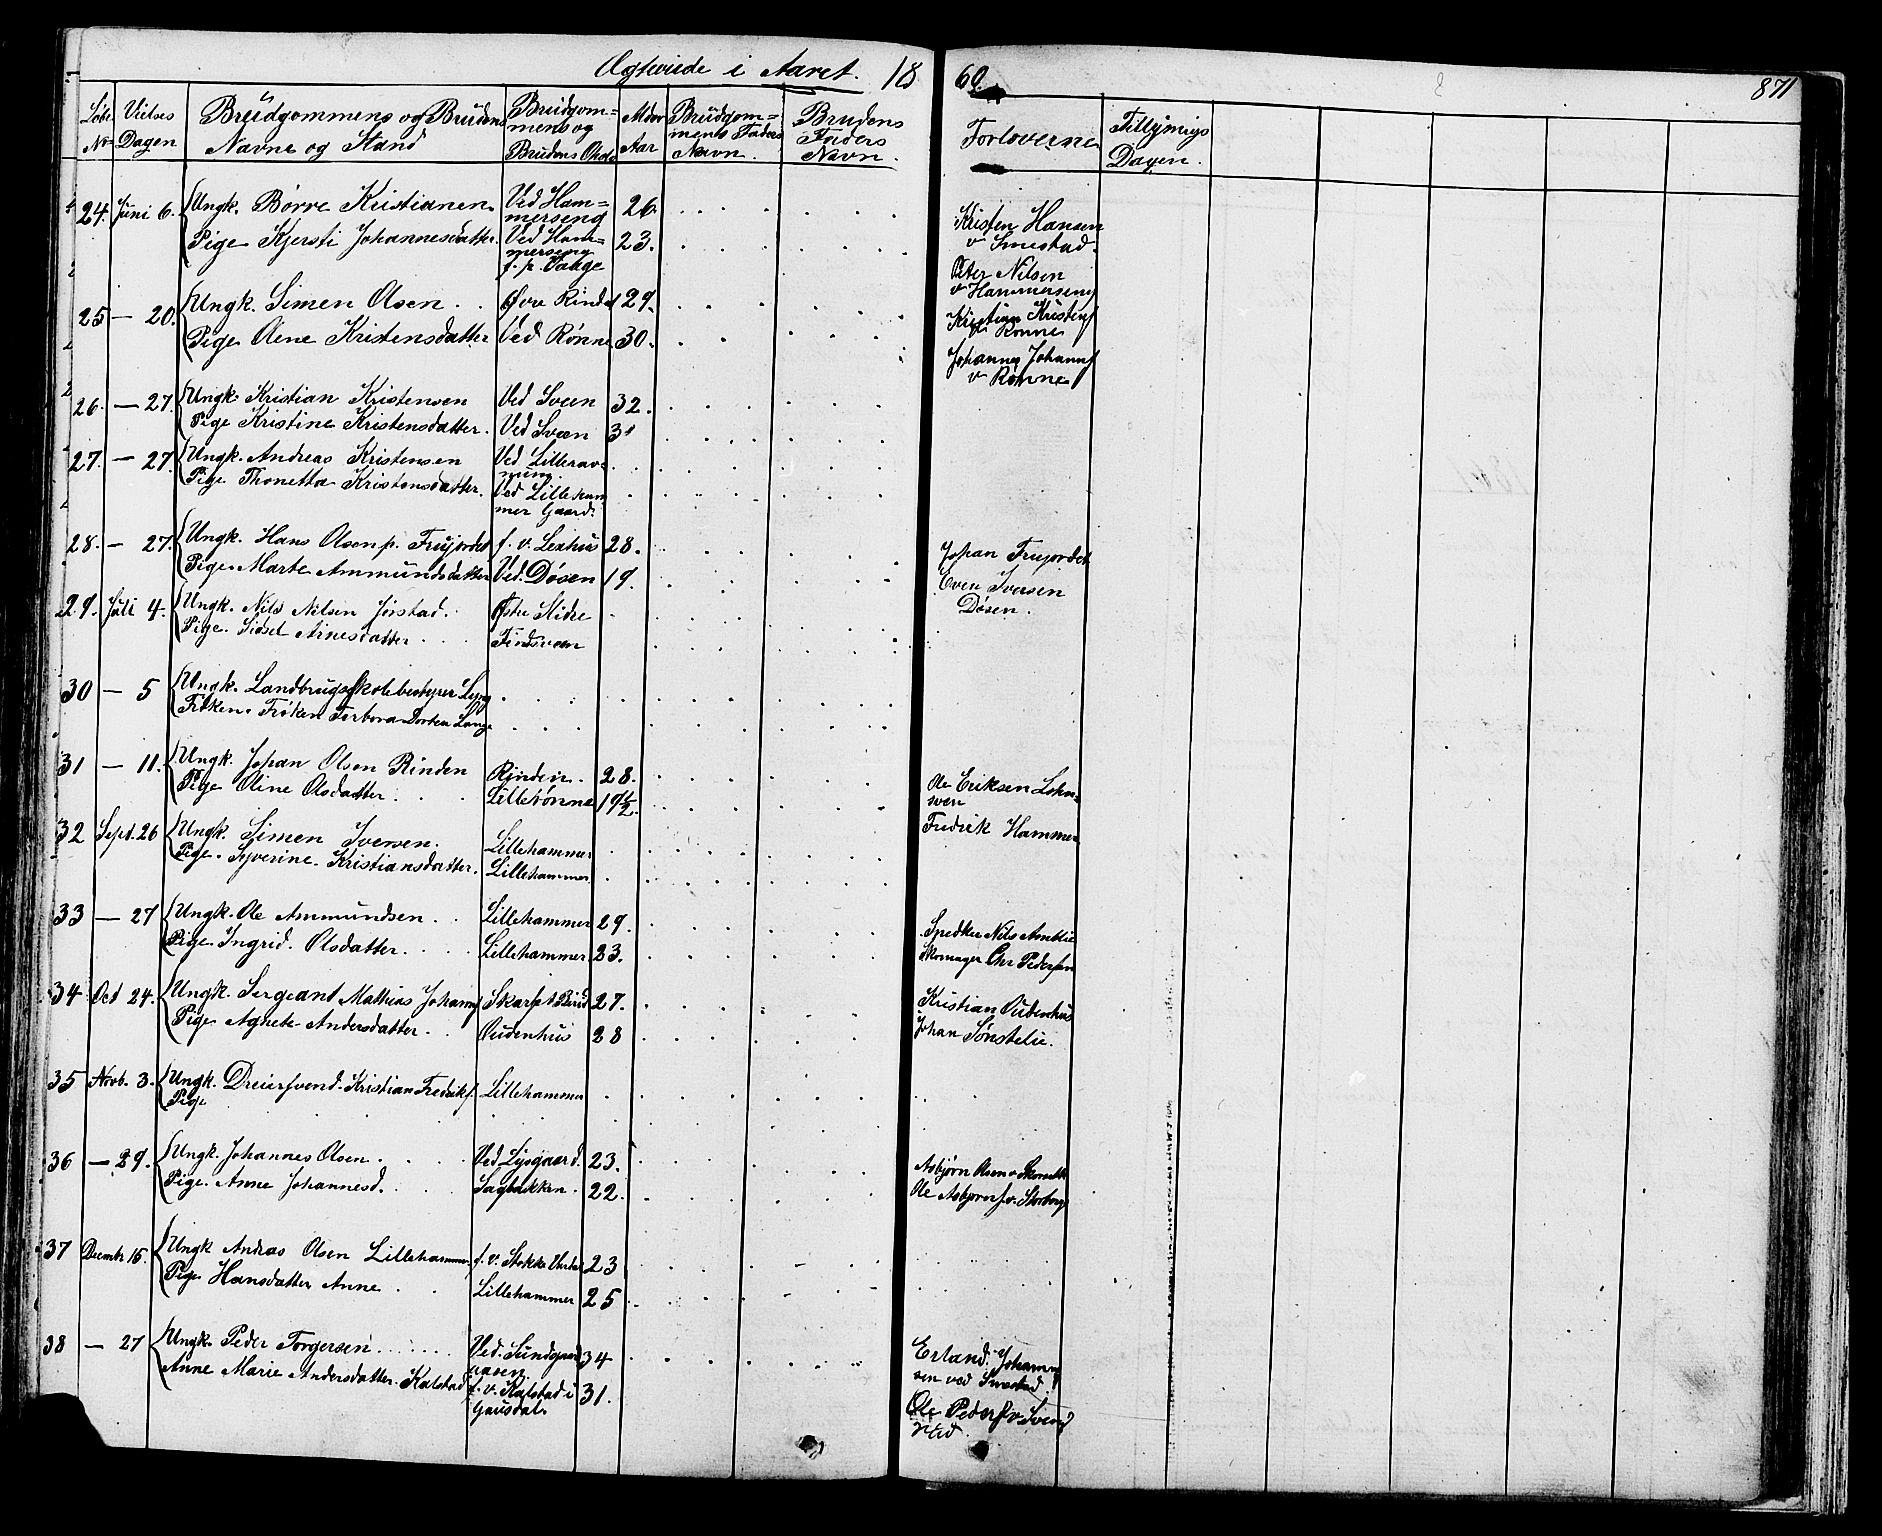 Ægteviede i Aaret 1860. 871
Løbe No Vielses Dagen Brüdgommens og Brüdens Navne og Stand Brüdgommens og Brüdens Opho Alder Aar Brüdgommens Faders Navn. Brudens Faders Navn. Forloverne Tillysnigs Dagen.
24. Juni 6. Ungk. Børre Kristiansen Ved Hammerseng 26. Kristen Hansen v Smestad.
Pige Kjersti Johannesdatter. Ved Hammerseng f. p. 23. Peter Nilsen v Hammerseng
25 — 20. Ungk. Simen Olsen Øvre Rindal 29. Kristian v Rønne
Pige Olene Kristensdatter Ved Rønne 30. Johannes v Rønne
26. — 27. Ungk. Kristian Kristensen Ved Sveen 32.
Pige Kristine Kristensdatter. Ved Sveen 31
27. — 27. Ungk. Andreas Kristensen Ved
Pige Thonetta Kristensdatter. Ved Lillehammer Gaard.
28. — 27. Ungk. Hans Olsen p. Frujordet f. v. 28. Johan Frujordet
Pige Marte Ammundsdatter Ved Døsen 19. Even Iversen Døsen.
29. Juli 4. Ungk. Nils Nilsen Jørstad. Østre Slidre
Pige. Sidsel Arnesdatter
30 — 5 Ungk. Landbrugsskolebestyrer Lyng
Frøken. Frøken Torbora Dortea Lange
31 — 11. Ungk. Johan Olsen Rinden Rinden. 28. Ole Eriksen
Pige Oline Olsdatter. Lillerønne 19½. Fredrik Hammer
32 Sept. 26 Ungk. Simen Iversen. Lillehammer
Pige. Syverine. Kristiansdatter. Lillehammer.
33 — 27 Ungk. Ole Ammundsen. Lillehammer 29. Nils
Pige Ingrid. Olsdatter. Lillehammer. 23. Skomager Chr Pedersen
34 Oct 24. Ungk. Sergeant Mathias 27. Kristian
Pige Agnete Andersdatter Oudenhus 28 Johan Sønstelie.
35 Novb. 3. Ungk. Dreiersvend. Kristian Fredriks. Lillehammer
Pige
36 — 29. Ungk. Johannes Olsen. Ved Lysgaard. 23. Asbjørn Olsen v
Pige. Anne Johannesd. Sagbakken. 22. Ole v.
37 Decembr 15. Ungk Andreas Olsen Lillehammer f. v. Stokke 23
Pige Hansdatter Anne Lillehammer 25
38 — 27 Ungk. Peder Torgersen Ved. 34 Erland. Johannesen ved Smestad
Anne Marie Andersdatter. Kalstad f. v. Kalstad i Gausdal. 31. Ole